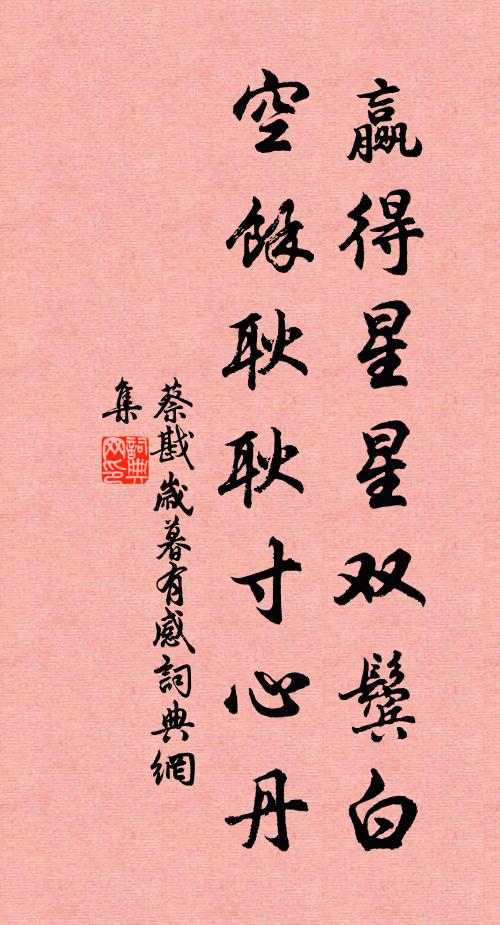 赢得星星双鬓白
空餘耿耿寸心丹
蔡戡歲暮有感詞典網
集
詞典
网印